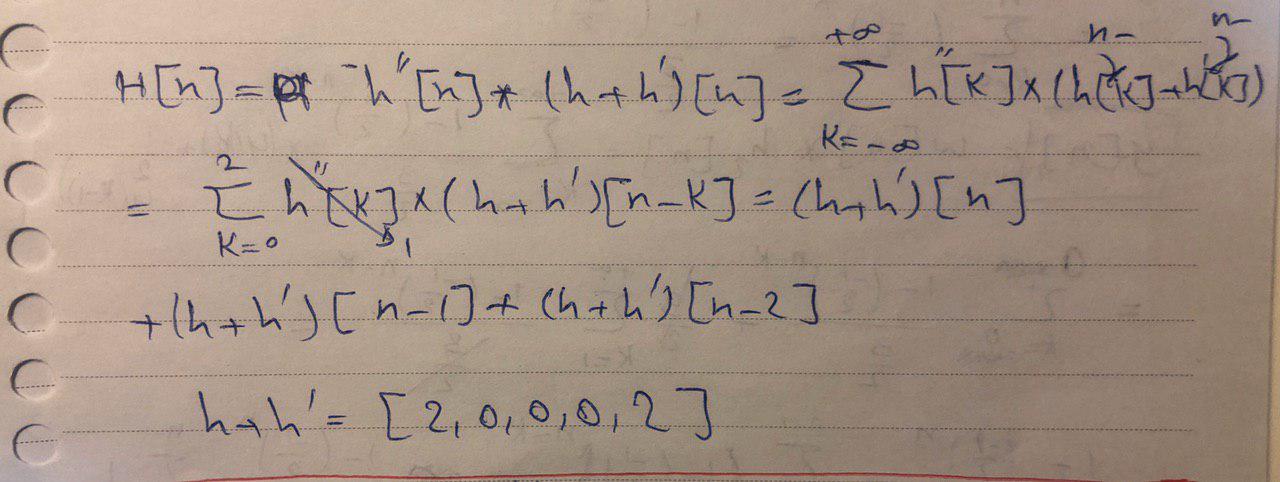 H[n] = h''[n] * (h+h')[n] = Σ_{k=-∞}^{+∞} h''[k] × (h[n-k] + h'[n-k])
= Σ_{k=0}^{2} h''[k] → 1 × (h+h')[n-k] = (h+h')[n]
+(h+h')[n-1] + (h+h')[n-2]
h+h' = [2,0,0,0,2]